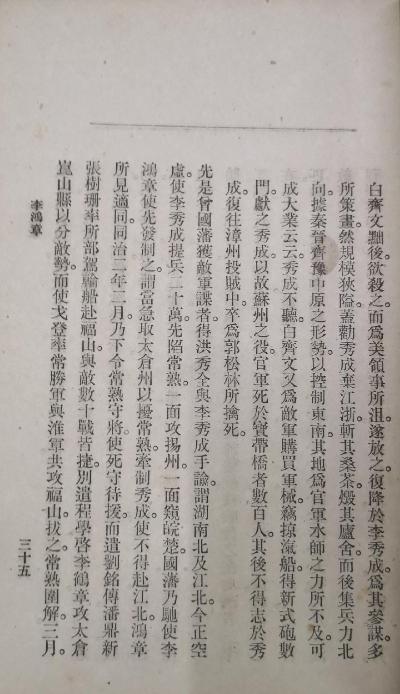 白齊文黜後欲殺之而爲美領事所沮遂放之復降於李秀成爲其參謀多
所策畫然規模狹隘蓋勸秀成棄江浙斬其桑茶燬其廬舍而後集兵力北
向據秦晉齊豫中原之形勢以控制東南其地爲官軍水師之力所不及可
成大業云云秀成不聽白齊文又爲敵軍購買軍械竊掠滊船得新式砲數
門獻之秀成以故蘇州之役官軍死於寶帶橋者數百人其後不得志於秀
成復往漳州投賊中卒爲郭松林所擒死
先是曾國藩獲敵軍諜者得洪秀全與李秀成手諭謂湖南北及江北今正空
虛使李秀成提兵二十萬先陷常熟一面攻揚州一面窺皖楚國藩乃馳使李
鴻章使先發制之謂當急取太倉州以擾常熟牽制秀成使不得赴江北鴻章
所見適同同治二年二月乃下令常熟守將使死守待援而遣劉銘傳潘鼎新
張樹珊率所部駕輪船赴福山與敵數十戰皆捷別遣程學啓李鶴章攻太倉
崑山縣以分敵勢而使戈登率常勝軍與淮軍共攻福山拔之常熟圍解三月
李鴻章
三十五